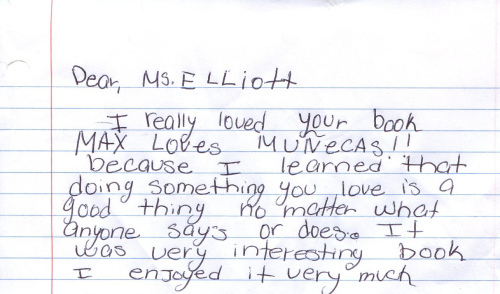 Dear, Ms. ELLiott
I really loved your book
MAX LOVes MUÑeCAS!!
because I learned that
doing something you love is a
good thing no matter what
anyone says or does. It
was very interesting book
I enjoyed it very much